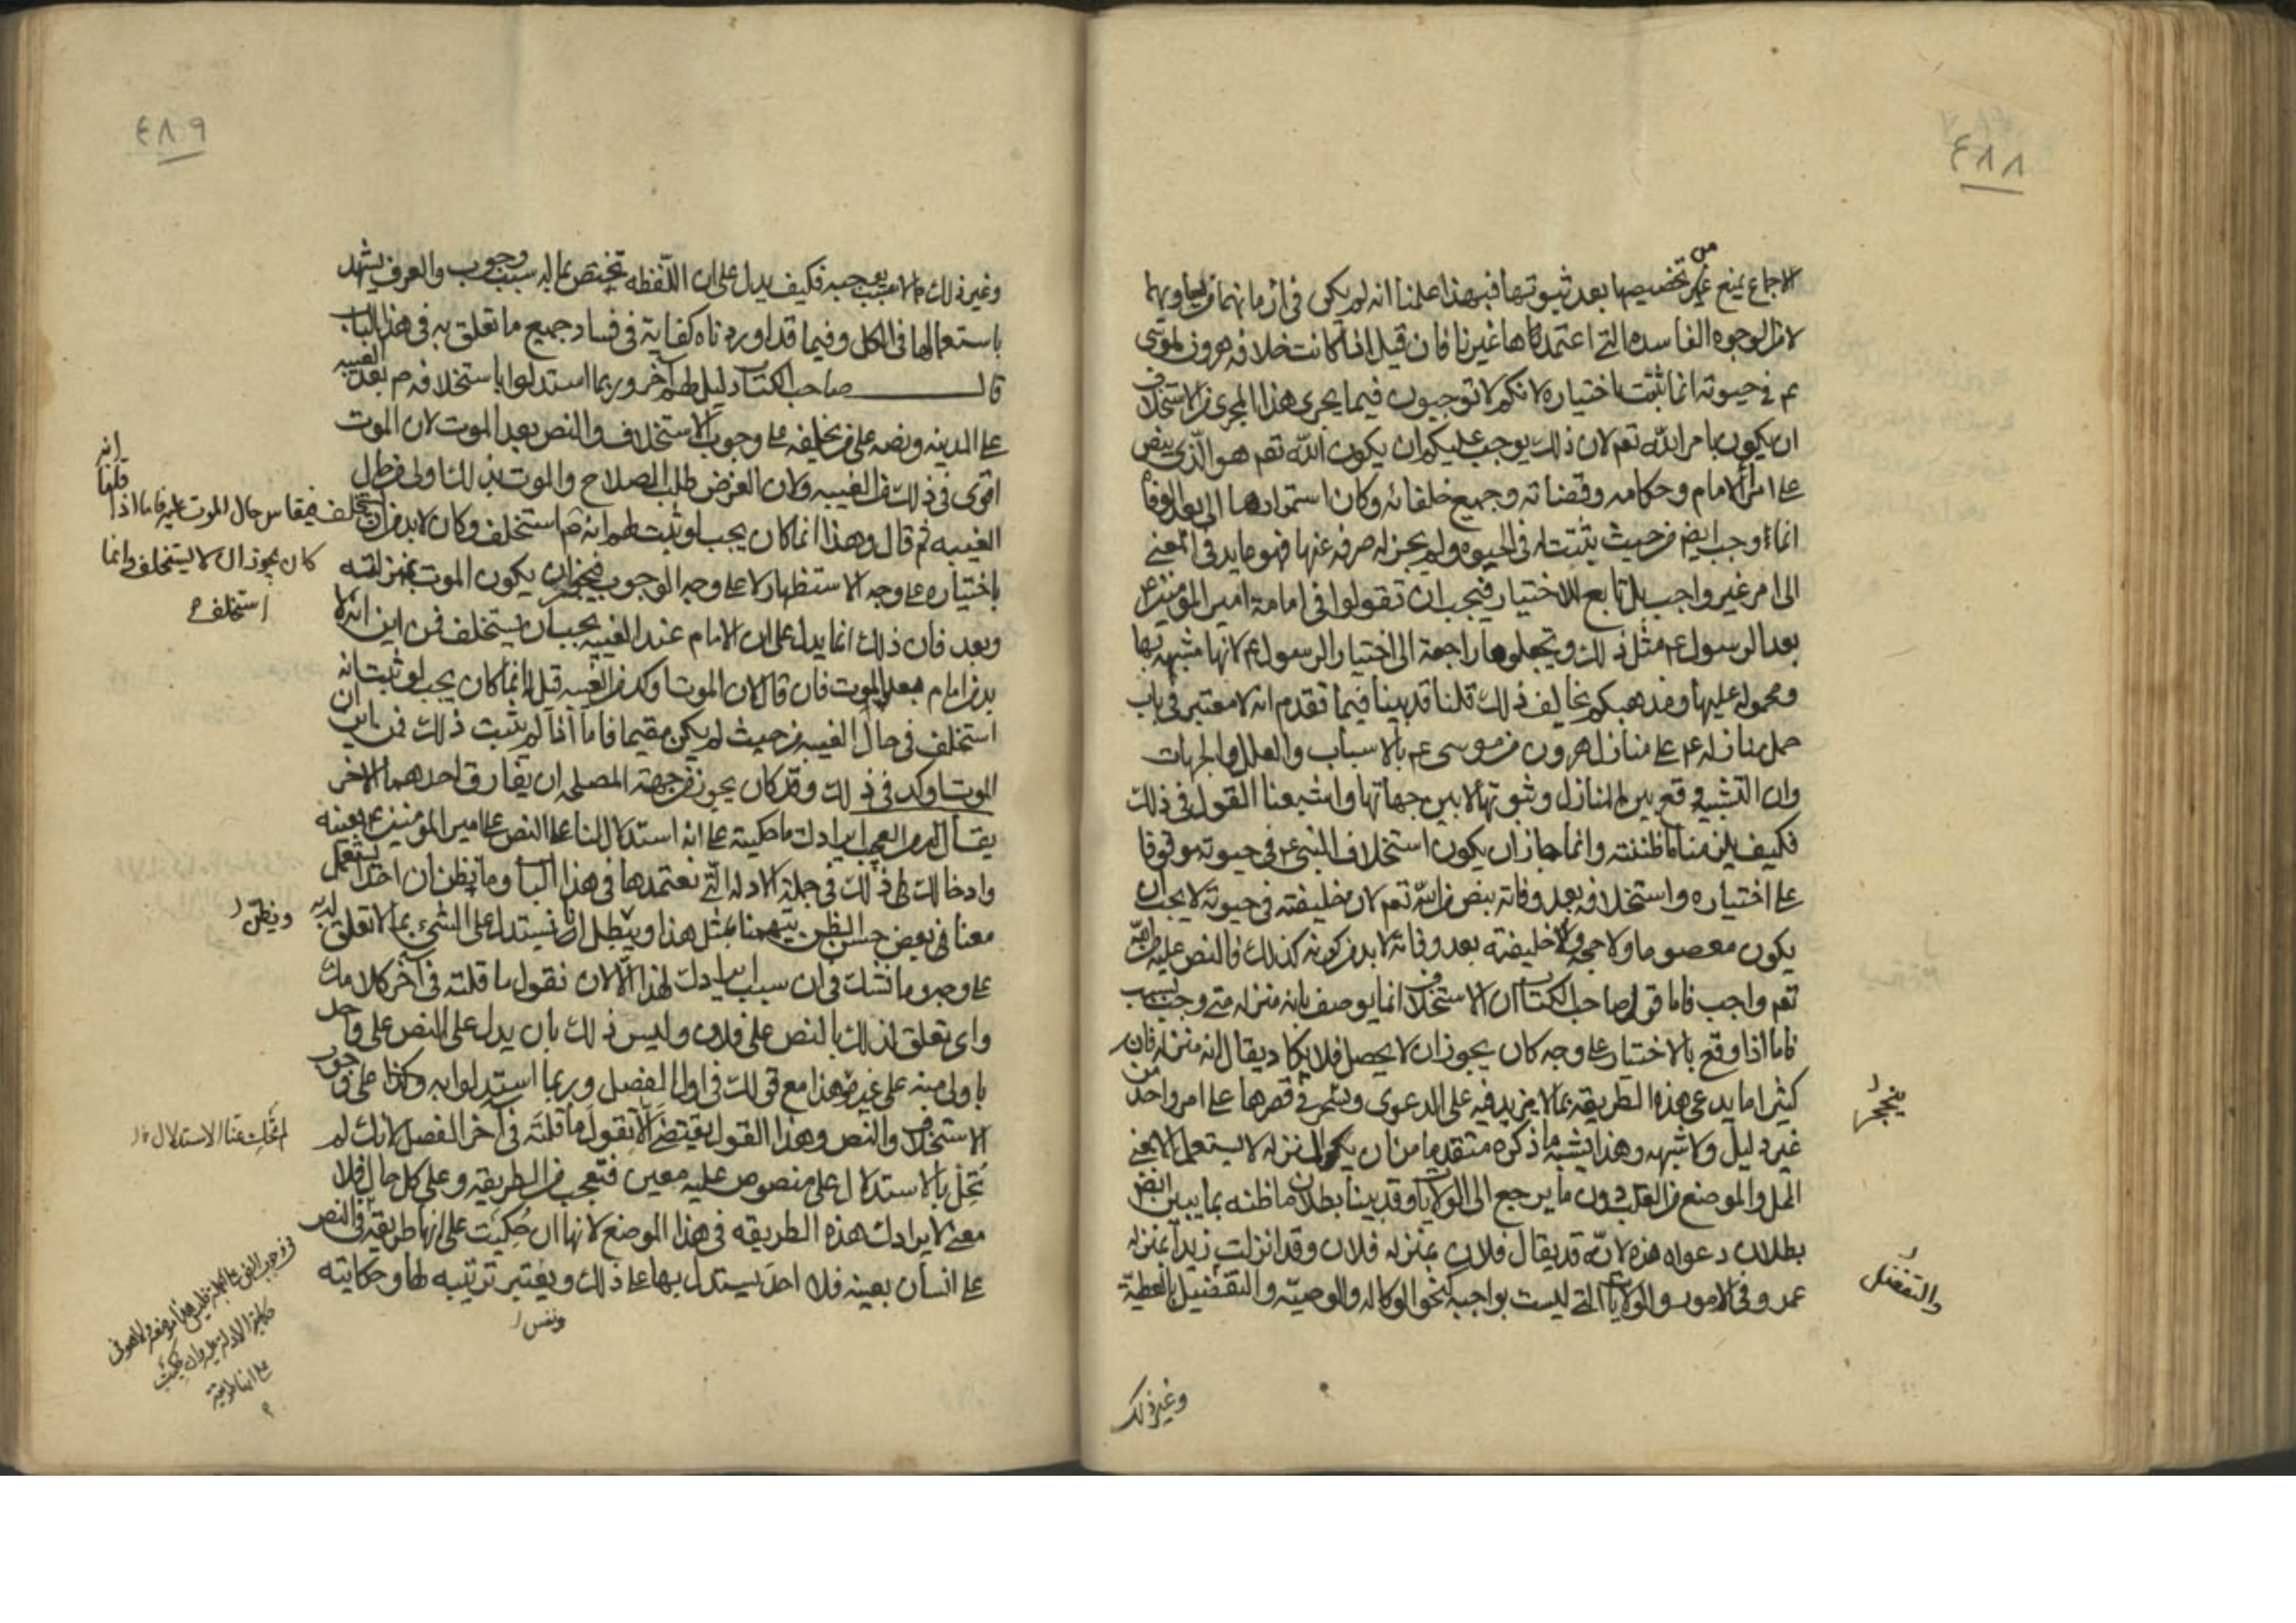 ٤٨٨
من
الاجماع يمنع من تخصيصها بعد ثبوتها فبهذا علمنا انه لم يكن في ازمانهما من يساويهما
لا من الوجوه الفاسدة التي اعتمدها غيرنا فان قيل اذا كانت خلافة هرون لموسى
عم في حيوته انما ثبتت باختياره لانكم لا توجبون فيما يجرى هذا المجرى من الاستخلاف
ان يكون بامر الله تعم لان ذلك يوجب عليكم ان يكون الله تعم هو الذي ينص
على امراء الامام وحكامه وقضاته وجميع خلفائه وكان استمرارها الى بعد الوفاة
انما وجب ايض من حيث ثبتت له في الحيوة ولم يجز له صرفه عنها فهو عايد في المعنى
الى امر غير واجب بل تابع للاختيار فيجب ان تقولوا في امامة امير المؤمنين ع
بعد الرسول ع مثل ذلك وتجعلوها راجعة الى اختيار الرسول ع لانها مشبهة بها
ومحمولة عليها ومذهبكم يخالف ذلك قلنا قد بينا فيما تقدم انه لا معتبر في باب
حمل منازله ع على منازل هرون من موسى ع بالاسباب والعلل والجهات
وان التشبيه وقع بين المنازل وثبوتها لا بين جهاتها واشبعنا القول في ذلك
فكيف يلزمنا ما ظننته وانما جاز ان يكون استخلاف النبي ع في حيوته موقوفا
على اختياره واستخلافه بعد وفاته بنص من الله تعم لان خليفته في حيوته لا يجب ان
يكون معصوما ولا حجة وخليفته بعد وفاته لا بد من كونه كذلك فالنص عليه من الله
تعم واجب فاما قول صاحب الكتاب ان الاستخلاف انما يوصف بانه منزلة متى وجب لسبب
فاما اذا وقع بالاختيار على وجه كان يجوز ان لا يحصل فلا يكاد يقال انه منزلة فان
كثيرا ما يدعى هذه الطريقة بما لا يزيد فيه على الدعوى في قصرها على امر واحد من
غير دليل ولا شبهة وهذا يشبه ما ذكره متقدما من ان يكون المنزلة لا يستعمل الا بمعنى
المحل والموضع من القلب دون ما يرجع الى الولايات وقد بينا بطلان ما ظنه بما يبين ايض
بطلان دعواه هذه لانه قد يقال فلان بمنزلة فلان وقد انزلت زيدا بمنزلة
عمرو في الامور والولايات التي ليست بواجبة نحو الوكالة والوصية والتفضيل بالعطية
والتفضل
وغير ذلك
٤٨٩
وغير ذلك مما لا سبب يوجبه فكيف يدل على ان اللفظة تختص بما له سبب وجوب والعرف يشهد
باستعمالها في الكل وفيما قد اوردناه كفاية في فساد جميع ما تعلق به في هذا الباب
قال صاحب الكتاب دليل لهم آخر وربما استدلوا باستخلافه ص بعد الغيبة
على المدينة ونصه على من يخلفه على وجوب الاستخلاف والنص بعد الموت لان الموت
اقوى في ذلك من الغيبة ولان الغرض طلب الصلاح والموت بذلك اولى من حال
الغيبة ثم قال وهذا انما كان يجب لو ثبت لهم انه ص استخلف وكان لا بد من ان
يستخلف فيقاس حال الموت عليه فاما اذا قلنا انه
كان يجوز ان لا يستخلف وانما
استخلف
باختياره على وجه الاستظهار لا على وجه الوجوب فيجوز ان يكون الموت بمنزلته
وبعد فان ذلك انما يدل على ان الامام عند الغيبة يجب ان يستخلف فمن اين انه لا
بد من امام بعد الموت فان قال لان الموت اوكد من الغيبة قيل له انما كان يجب لو ثبت انه
استخلف في حال الغيبة من حيث لم يكن مقيما فاما اذا لم يثبت ذلك فمن اين ان
الموت اوكد في ذلك وقد كان يجوز من جهة المصلحة ان يفارق احدهما الاخر
يقال له من العجب ايرادك ما حكيته على انه استدلال لنا على النص على امير المؤمنين ع بعينه
وادخالك له في جملة الادلة التي نعتمدها في هذا الباب وما نظن ان احدا يستعمل
معنا في بعض حسن الظن يتهمنا بمثل هذا ويظن بنا انا نستدل على الشيء بما لا تعلق له به
ويظن
على وجه وما نشك في ان سبب ايرادك لهذا الا لان نقول ما قلته في آخر كلامك
واي تعلق لذلك بالنص على فلان وليس ذلك بان يدل على النص على واحد
باولى منه على غيره هذا مع قولك في اول الفصل وربما استدلوا به وكذا على وجوب
الاستخلاف والنص وهذا القول يقتضي الا تقول ما قلته في آخر الفصل لانك لم
تحك عنا الاستدلال
تخل بالاستدلال على منصوص عليه معين فتعجب من الطريقة وعلى كل حال فلا
معنى لايرادك هذه الطريقة في هذا الموضع لانها ان حكيت على انها طريقة في النص
على انسان بعينه فلا احد يستدل بها على ذلك ويعتبر ترتيبه لها وحكايته
على انها طريقة